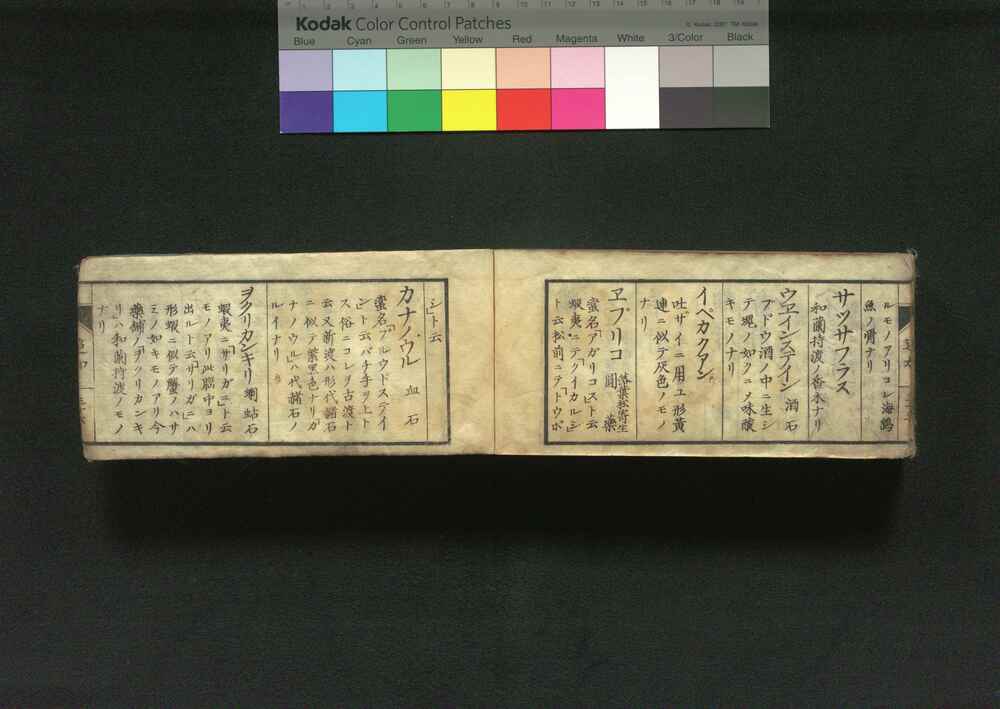 Kodak Color Control Patches
© Kodak, 2007 TM: Kodak
Blue Cyan Green Yellow Red Magenta White 3/Color Black
ルモノアリコレ海鷂
魚ノ骨ナリ
サッサフラス
和蘭持渡ノ香木ナリ
ウヱインステイン 酒石
フドウ酒ノ中ニ生シ
テ塊ノ如クニメ味酸
キモノナリ
イペカクアン
吐ザイニ用ユ形黄
連ニ似テ灰色ノモノ
ナリ
ヱブリコ 落葉松寄生
圓藥
蛮名「アガリコ」スト云
蝦夷ニテ「クイカルシ」
ト云松前ニテ「トウボ
シ」ト云
カナノウル 血石
蛮名「ブルウドステイ
ン」ト云バチ手ヲ上ト
ス俗ニコレヲ古渡ト
云又新渡ハ形代赭石
ニ似テ紫黑色ナリ「カ
ナノウル」ハ代赭石ノ
ルイナリ
ヲクリカンキリ 蝲蛄石
蝦夷ニ「サリガニ」ト云
モノアリ此脳中ヨリ
出ルト云「ザリガニ」ハ
形蝦ニ似テ蟹ノハサ
ミノ如キモノアリ今
藥鋪ノ「ヲクリカンキ
リ」ハ和蘭持渡ノモノ
ナリ